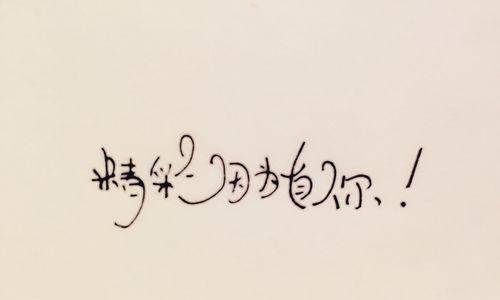 精彩因为有你!